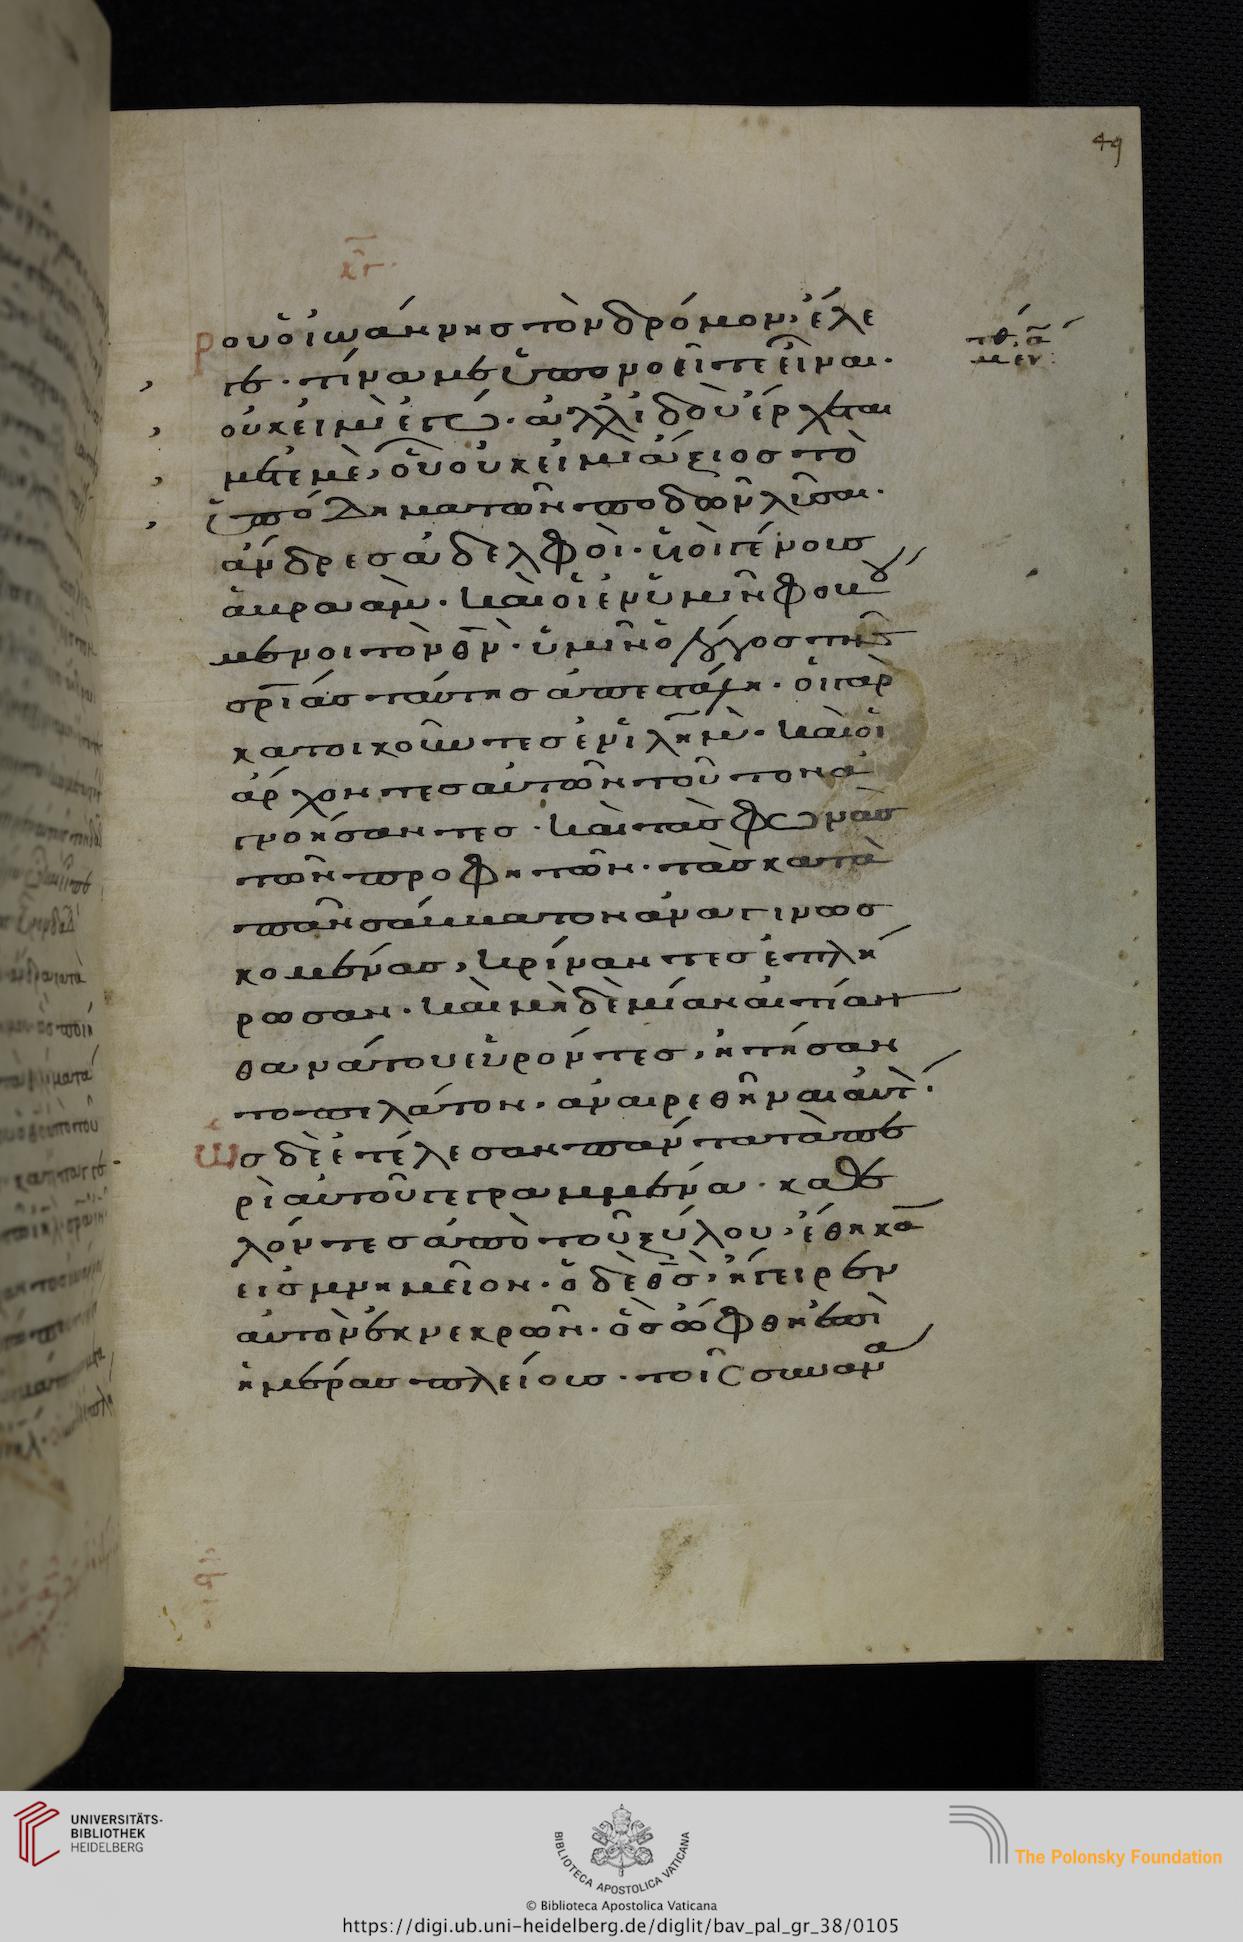 49
κγ
ρου ὁ ἰωάννησ τὸν δρόμον, ἔλε
γε· τίνα με ὑπονοεῖτε εἶναι·
οὐκ εἰμὶ ἐγώ· ἀλλ ἰδοὺ ἔρχεται
μετ ἐμὲ, οὗ οὐκ εἰμὶ ἄξιοσ τὸ
ὑπόδημα τῶν ποδῶν λῦσαι·
ἄνδρεσ ἀδελφοὶ· υἱοὶ γένουσ
ἀβρααμ· καὶ οἱ ἐν ὑμῖν φοβού
μενοι τὸν θν· ὑμῖν ὁ λόγοσ τῆσ
σρίασ ταύτησ ἀπεστάλη· οἱ γὰρ
κατοικοῦντεσ ἐν ἱλημ· καὶ οἱ
ἄρχοντεσ αὐτῶν τοῦτον ἀ
γνοήσαντεσ· καὶ τὰσ φωνὰσ
τῶν προφητῶν· τὰσ κατὰ
πᾶν σάββατον ἀναγινωσ
κομένασ, κρίναντεσ ἐπλή
ρωσαν· καὶ μὴδὲμίαν αἰτίαν
θανάτου εὑρόντεσ, ἠτήσαν
το πιλάτον· ἀναιρεθῆναι αὐτ·
Ὡσ δὲ ἐτέλεσαν πάντα τὰ πε
ρὶ αὐτοῦ γεγραμμένα· καθε
λόντεσ ἀπὸ τοῦ ξύλου, ἔθηκα
εἰσ μνημεῖον· ὁ δὲ θσ, ἤγειρεν
αὐτὸν ἐκ νεκρῶν· ὃσ ὤφθη ἐπὶ
ἡμέρασ πλείουσ· τοῖσ συναν
UNIVERSITÄTS-
BIBLIOTHEK
HEIDELBERG
BIBLIOTECA APOSTOLICA VATICANA
The Polonsky Foundation
© Biblioteca Apostolica Vaticana
https://digi.ub.uni-heidelberg.de/diglit/bav_pal_gr_38/0105